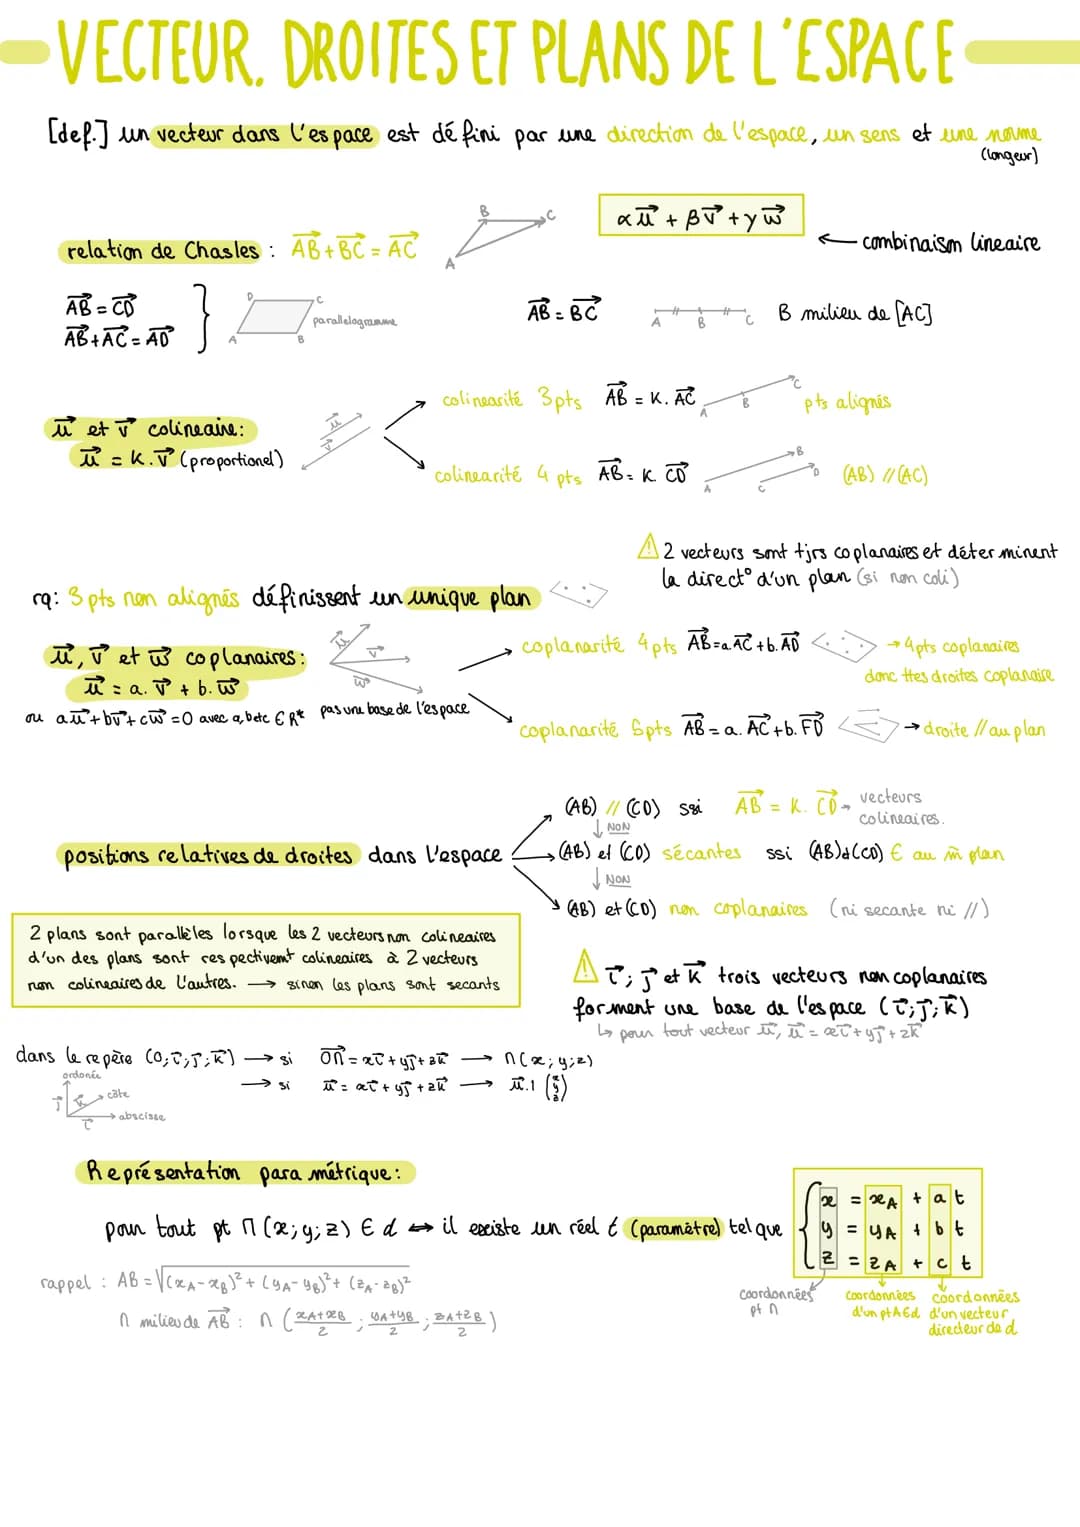 VECTEUR, DROITES ET PLANS DE L'ESPACE
[def.] un vecteur dans l'espace est défini par une direction de l'espace, un sens et une norme
(longeur)
relation de Chasles : AB⃗ + BC⃗ = AC⃗
A B C
αu⃗ + βv⃗ + γw⃗
← combinaison lineaire
AB⃗ = CD⃗
AB⃗ + AC⃗ = AD⃗ }
D C A B
parallelogramme
AB⃗ = BC⃗
A B C
B milieu de [AC]
u⃗ et v⃗ colineaire:
u⃗ = K.v⃗ (proportionel)
u⃗ v⃗
colinearité 3pts AB⃗ = K. AC⃗
A B C
pts alignés
colinearité 4 pts AB⃗ = K. CD⃗
A B C D
(AB) // (AC)
⚠ 2 vecteurs sont tjrs coplanaires et déterminent
la direct° d'un plan (si non coli)
rq: 3 pts non alignés définissent un unique plan
u⃗, v⃗ et w⃗ coplanaires:
u⃗ = a. v⃗ + b. w⃗
ou au⃗ + bv⃗ + cw⃗ = 0 avec a, b et c ∈ R*
u⃗ v⃗ w⃗
pas une base de l'espace
coplanarité 4pts AB⃗ = a.AC⃗ + b. AD⃗
→ 4pts coplanaires
donc ttes droites coplanaire
coplanarité 6pts AB⃗ = a. AC⃗ + b. FD⃗
→ droite // au plan
positions relatives de droites dans l'espace
(AB) // (CD) ssi AB⃗ = K. CD⃗ → vecteurs
colineaires.
↓ NON
(AB) et (CD) sécantes ssi (AB)d(CD) ∈ au m̂ plan
↓ NON
(AB) et (CD) non coplanaires (ni secante ni //)
2 plans sont parallèles lorsque les 2 vecteurs non colineaires
d'un des plans sont respectivemt colineaires à 2 vecteurs
non colineaires de l'autres. → sinon les plans sont secants
⚠ i⃗; j⃗ et k⃗ trois vecteurs non coplanaires
forment une base de l'espace (i⃗; j⃗; k⃗)
↳ pour tout vecteur u⃗, u⃗ = xi⃗ + yj⃗ + zk⃗
dans le repère (O; i⃗; j⃗; k⃗) → si OM⃗ = xi⃗ + yj⃗ + zk⃗ → M(x; y; z)
→ si u⃗ = xi⃗ + yj⃗ + zk⃗ → u⃗.1 (x y z)
ordonée
j⃗ k⃗ côte
i⃗ abscisse
Représentation paramétrique:
pour tout pt M (x; y; z) ∈ d ↔ il existe un réel t (paramètre) tel que
x = xA + a t
y = yA + b t
z = zA + c t
coordonnées
pt M
coordonnées
d'un pt A∈d
coordonnées
d'un vecteur
directeur de d
rappel : AB = √(xA - xB)² + (yA - yB)² + (zA - zB)²
M milieu de AB⃗ : M (xA+xB/2 ; yA+yB/2 ; zA+zB/2)